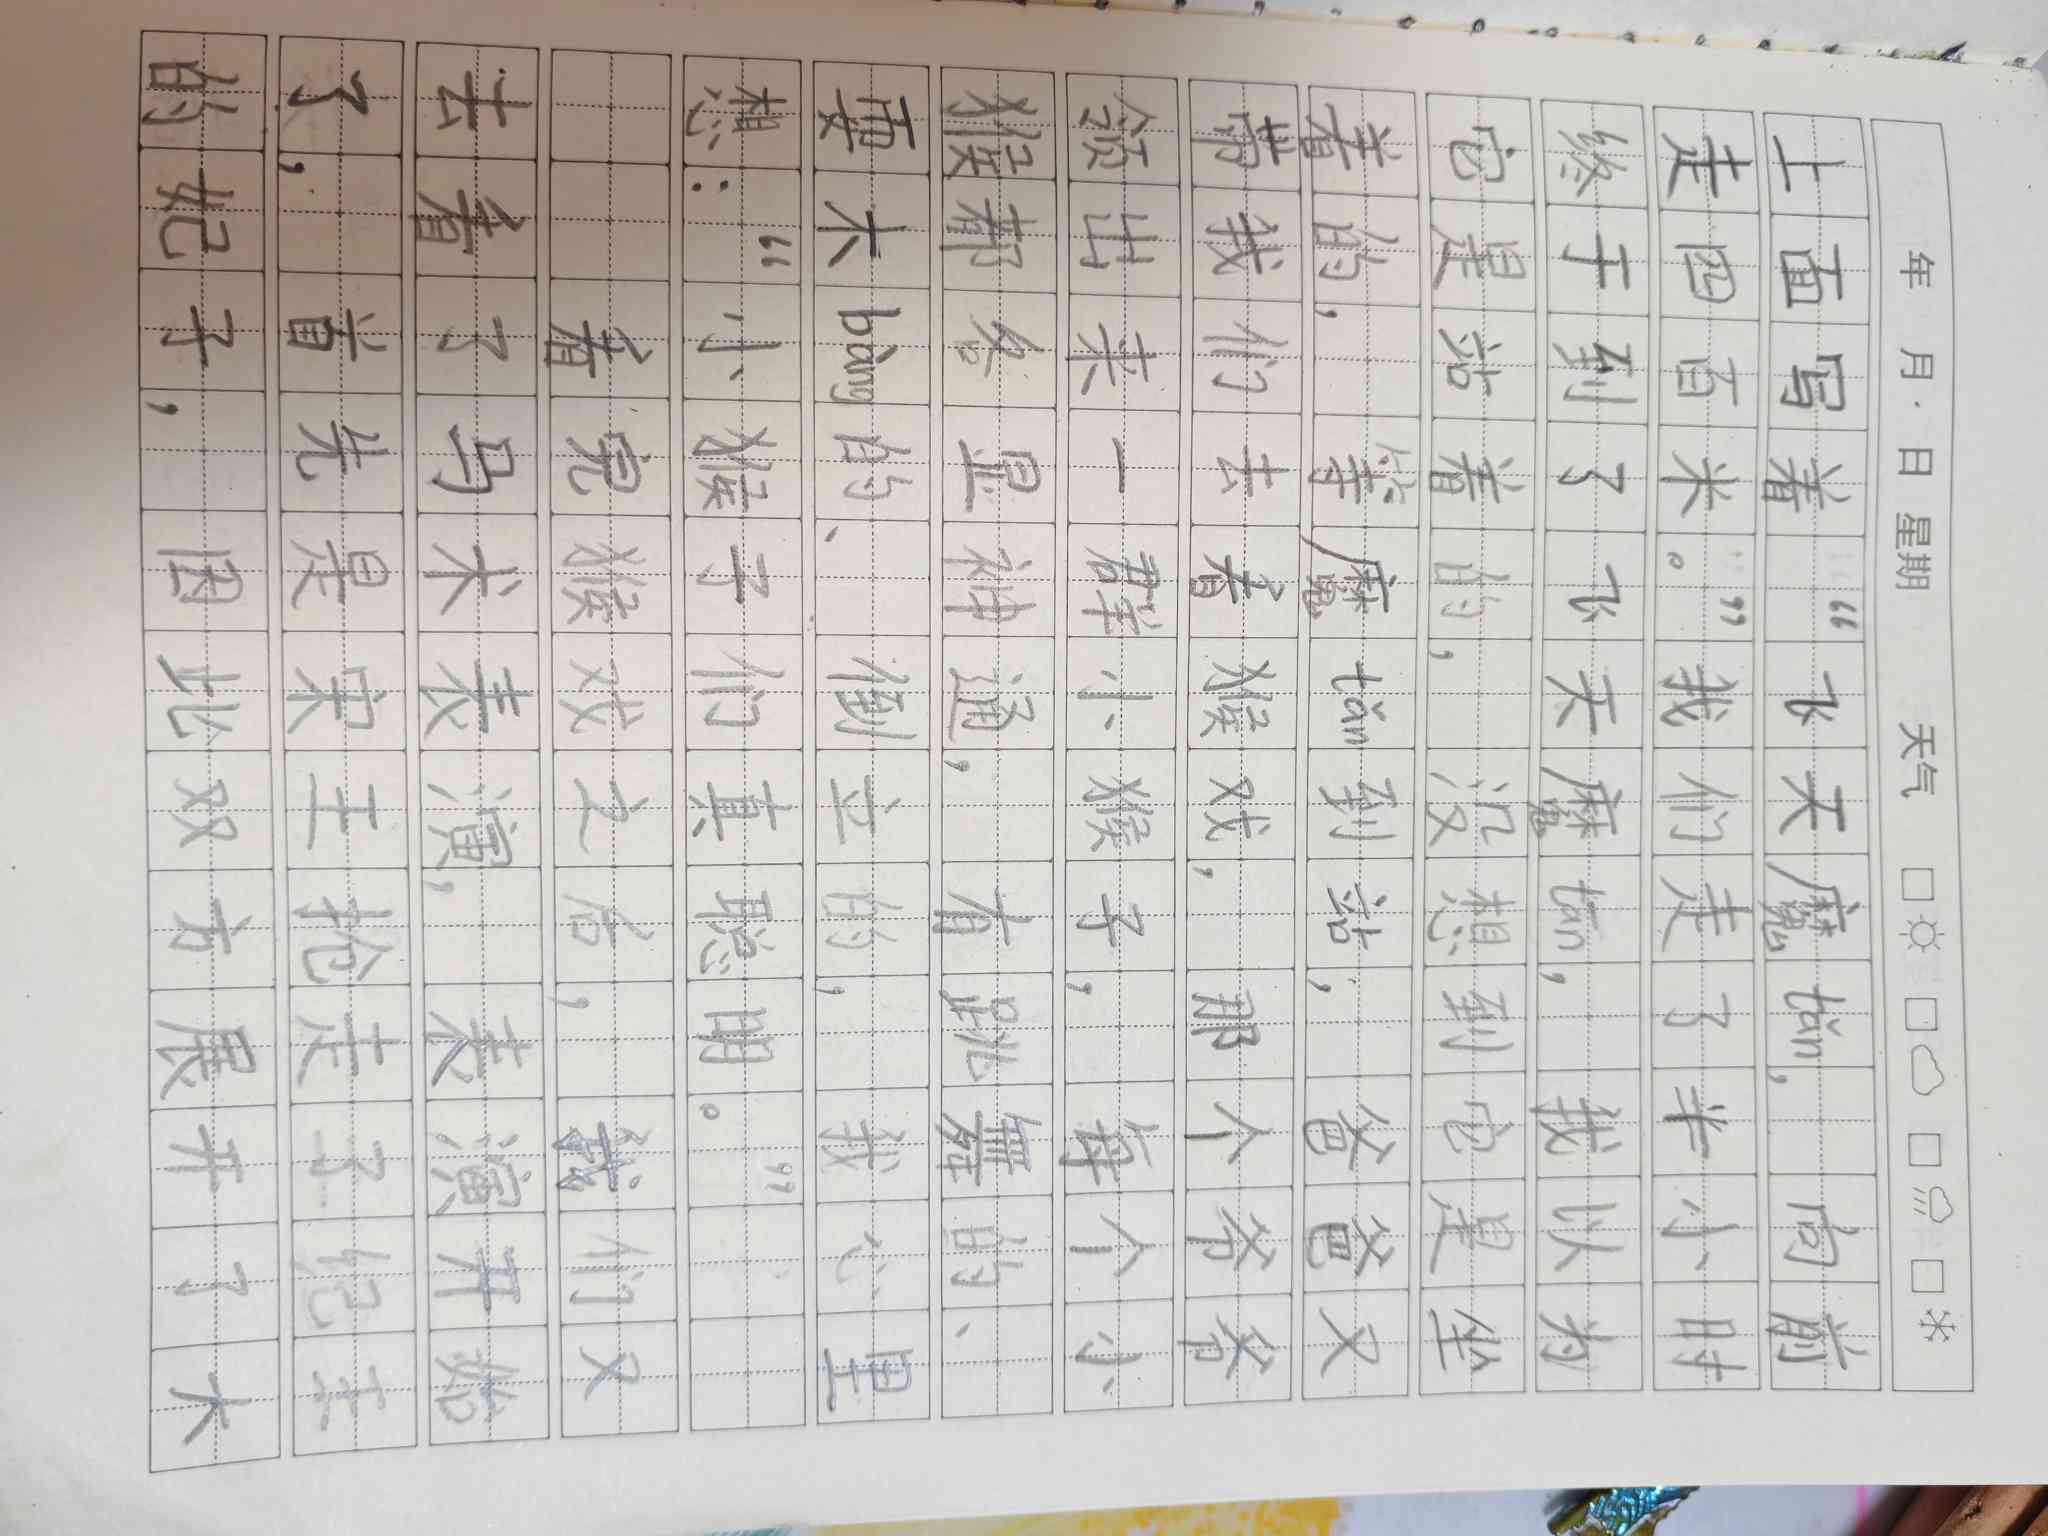 年 月 日 星期 天气
上面写着“飞天魔tǎn,向前
走四百米。”我们走了半小时
终于到了飞天魔tǎn,我以为
它是站着的,没想到它是坐
着的,坐魔tǎn到站,爸爸又
带我们去看猴戏,那个爷爷
领出来一群小猴子,每个小
猴都各显神通,有跳舞的、
耍木bàng的、倒立的,我心里
想:“小猴子们真聪明。”
看完猴戏之后,我们又
去看了马术表演,表演开始
了,首先是宋王抢走了纪王
的妃子,因此双方展开了大